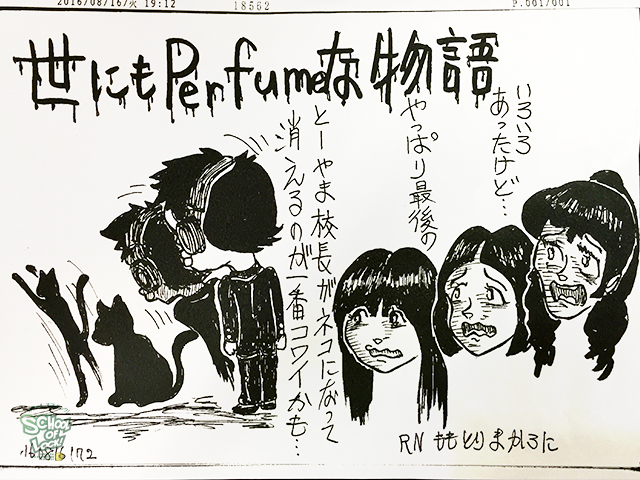 2016/08/16/火 19:12
18562
P.001/001
世にもPerfumeな物語
いろいろ
あったけど…
やっぱり最後の
とーやま校長がネコになって
消えるのが一番コワイかも…
RN ももとりまかろに
SCHOOL
OF
LOCK!